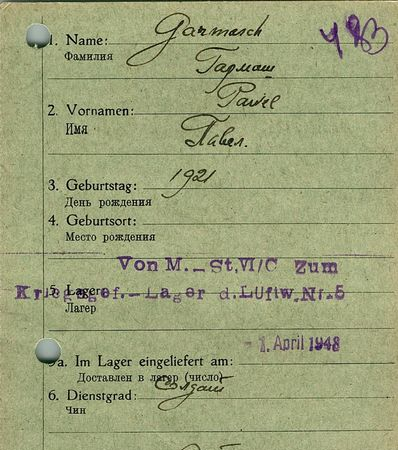 1. Name: Garmasch
Фамилия
Гармаш
2. Vornamen: Pawel
Имя
Павел.
3. Geburtstag: 1921
День рождения
4. Geburtsort:
Место рождения
Von M._ St.VI/C Zum
5. Lager:
Kriegsgef._ Lager d.Luftw.Nr.5
Лагер
1. April 1943
5a. Im Lager eingeliefert am:
Доставлен в лагер (число)
6. Dienstgrad: Солдат
Чин